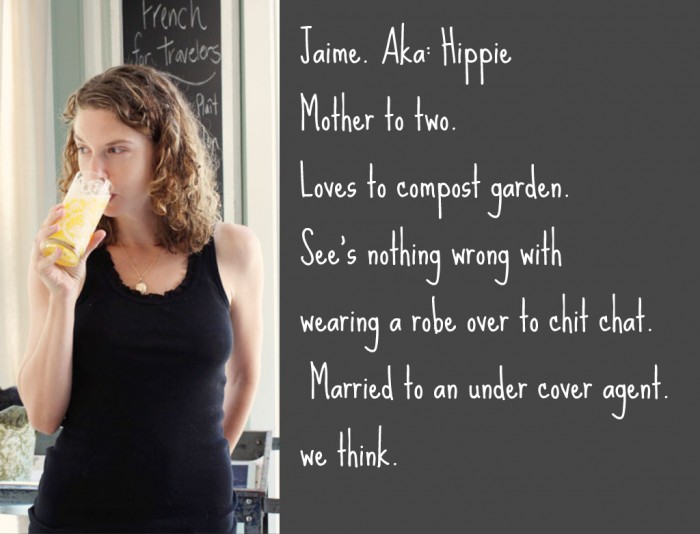 French
for travelers
Plaît
Jaime. Aka: Hippie
Mother to two.
Loves to compost garden.
See's nothing wrong with
wearing a robe over to chit chat.
Married to an under cover agent.
we think.